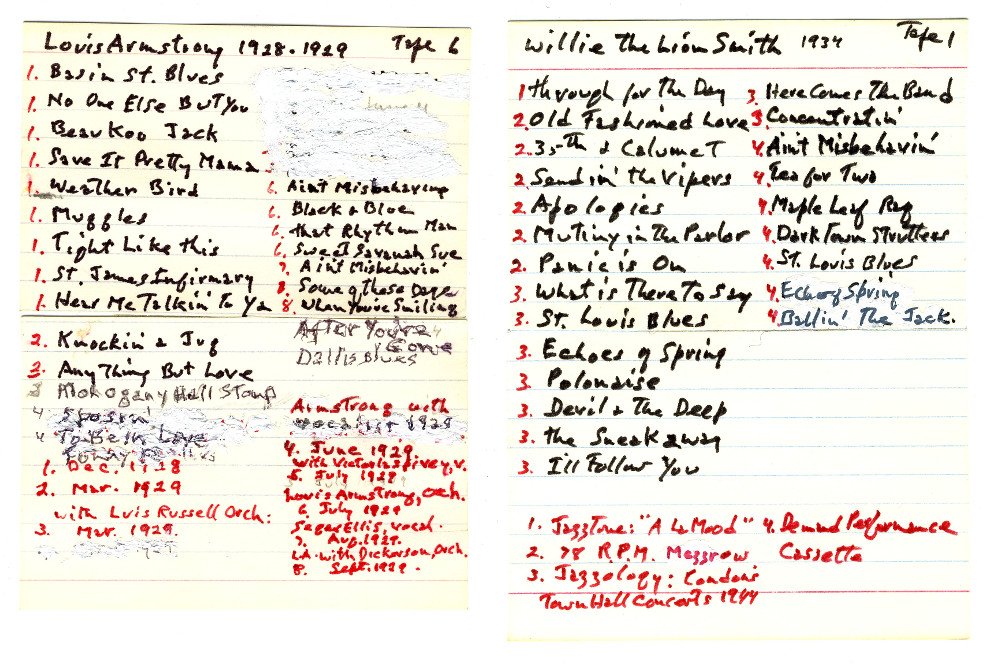 Louis Armstrong 1928-1929 Tape 6
1. Basin St. Blues
1. No One Else But You
1. Beau Koo Jack
1. Save It Pretty Mama
1. Weather Bird
1. Muggles
1. Tight Like this
1. St. James Infirmary
1. Hear Me Talkin' To Ya
2. Knockin a Jug
2. AnyThing But Love
3 Mohogany Hall Stomp
4 Sposin'
4 To Be In Love
1. Dec. 1928
2. Mar. 1929
with Luis Russell Orch:
3. Mar. 1929.
6. Ain't Misbehaving
6. Black & Blue
6. that Rhythm Man
6. Sweet Savanah Sue
7. Ain't Misbehavin'
8. Some of These Days
8. When You're Smiling
After You're Gone
Dallis Blues
Armstrong with
vocalist 1929
4. June 1929.
with Victoria Spivey, v.
5. July 1929
Louis Armstrong, Orch.
6. July 1929
Seger Ellis, vocal.
7. Aug. 1929.
L.A. with Dickerson, Orch.
8. Sept. 1929.
Willie the Lion Smith 1934 Tape 1
1 through for the Day
2. Old Fashioned Love
2. 35th & Calumet
2. Send in' the Vipers
2. Apologies
2. Mutiny in the Parlor
2. Panic is On
3. What is There To Say
3. St. Louis Blues
3. Echoes of Spring
3. Polonaise
3. Devil & The Deep
3. the Sneakaway
3. I'll Follow You
3. Here Comes The Band
3. Concentratin'
4. Ain't Misbehavin'
4. Tea for Two
4. Maple Leaf Rag
4. Dark Town Strutters
4. St. Louis Blues
4. Echo of Spring
4. Ballin' The Jack.
1. JazzTone: "A La Mood"
2. 78 R.P.M. Mezzrow
3. Jazzology: Condon's
Town Hall Concerts 1944
4. Demand Performance
Cassette